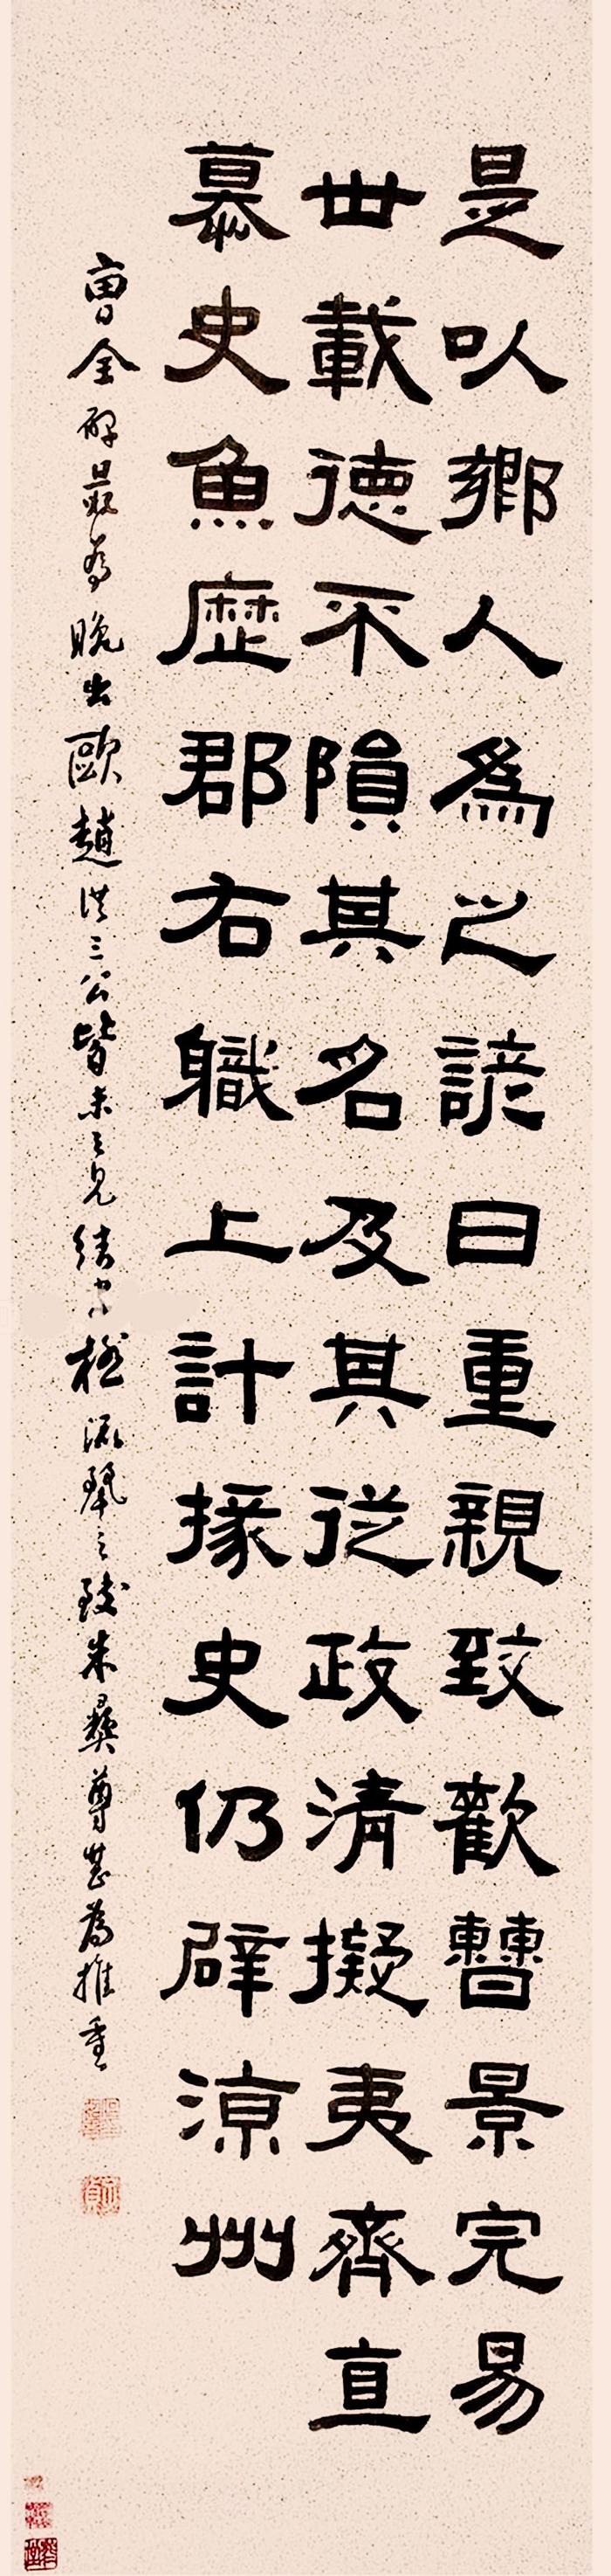 是以鄉人為之諺曰重親致歡曹景完易
世載德不隕其名及其從政清擬夷齊直
慕史魚歷郡右職上計掾史仍辟涼州
曹全碑最為晚出歐趙洪三公皆未之見結字極流麗之致朱彝尊甚為推重